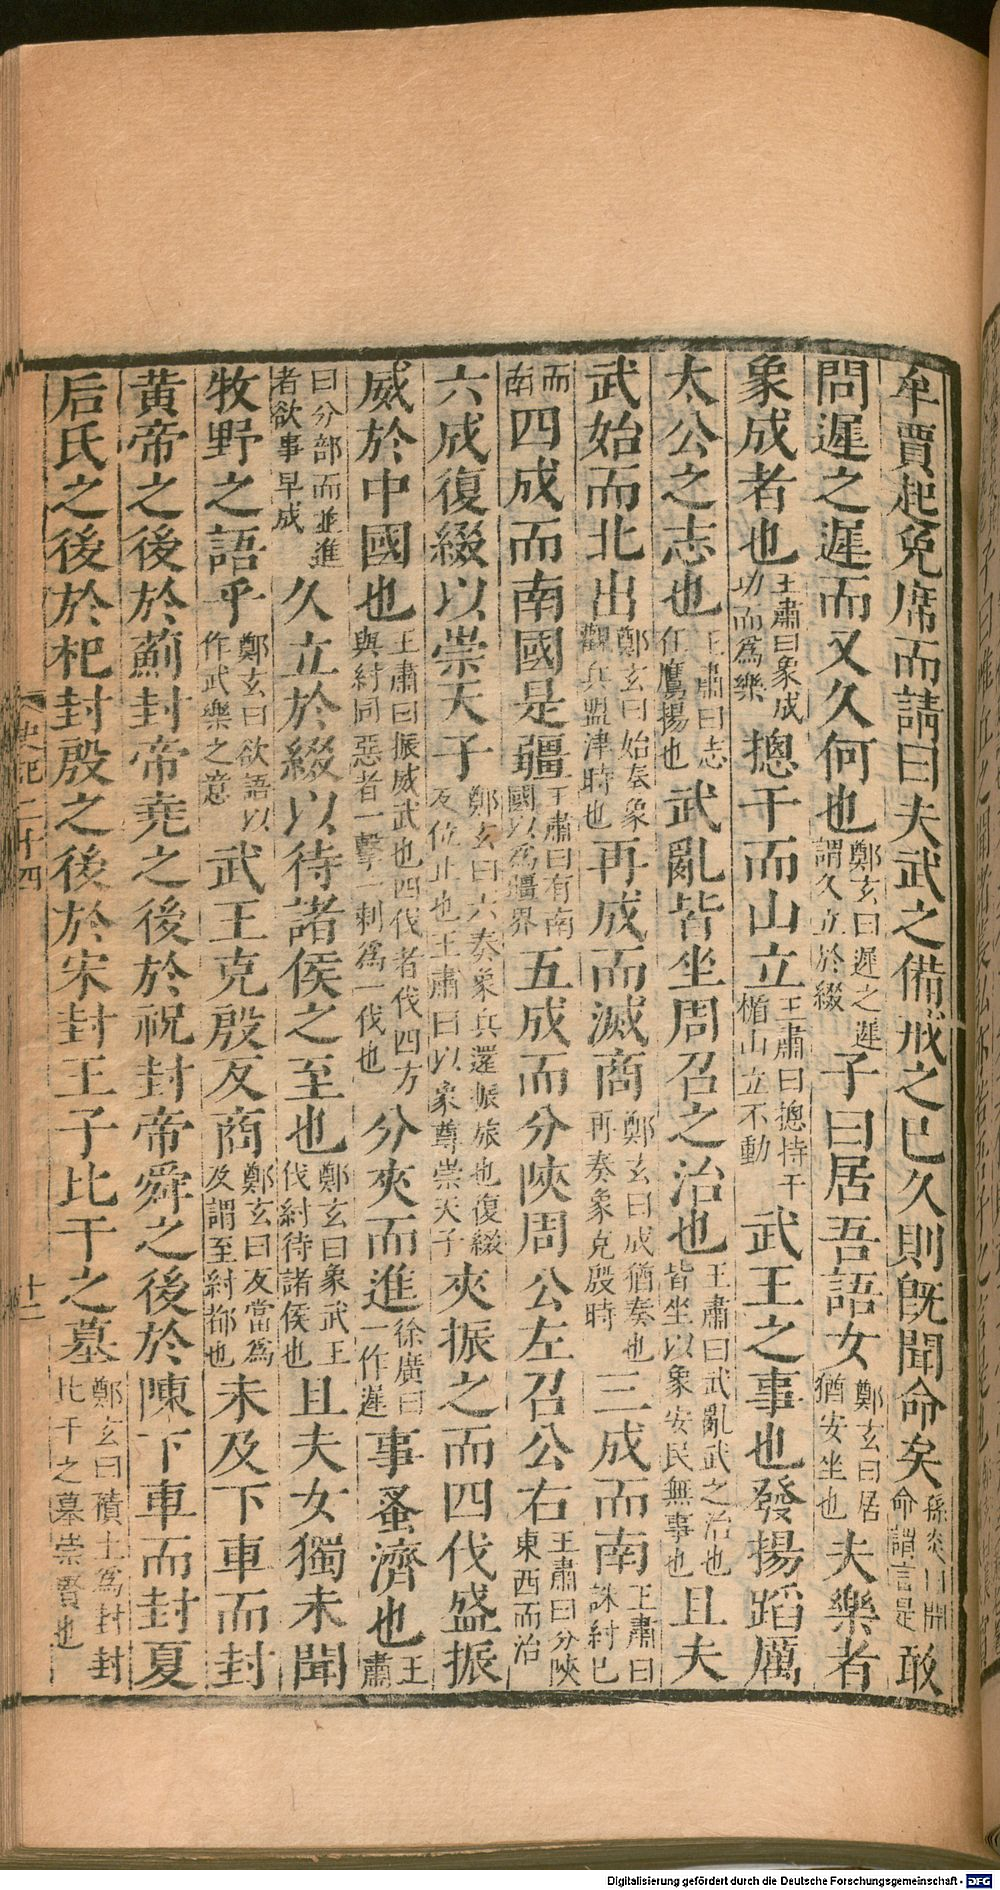 牟賈起免席而請曰夫武之備戒之已久則旣聞命矣孫炎曰聞命謂言是敢
問遲之遲而又久何也鄭玄曰遲之遲謂久立於綴子曰居吾語女鄭玄曰居猶安坐也夫樂者
象成者也王肅曰象成功而爲樂摠干而山立王肅曰摠持干楯山立不動武王之事也發揚蹈厲
太公之志也王肅曰志在鷹揚也武亂皆坐周召之治也王肅曰武亂武之治也皆坐以象安民無事也且夫
武始而北出鄭玄曰始奏象觀兵盟津時也再成而滅商鄭玄曰成猶奏也再奏象克殷時三成而南王肅曰誅紂已
而南四成而南國是疆王肅曰有南國以爲疆界五成而分陝周公左召公右王肅曰分陝東西而治
六成復綴以崇天子鄭玄曰六奏象兵還振旅也復綴反位止也王肅曰以象尊崇天子夾振之而四伐盛振
威於中國也王肅曰振威武也四伐者伐四方與紂同惡者一擊一刺爲一伐也分夾而進徐廣曰一作遲事蚤濟也王肅
曰分部而並進者欲事早成久立於綴以待諸侯之至也鄭玄曰象武王伐紂待諸侯也且夫女獨未聞
牧野之語乎鄭玄曰欲語以作武樂之意武王克殷反商鄭玄曰反當爲及謂至紂都也未及下車而封
黃帝之後於薊封帝堯之後於祝封帝舜之後於陳下車而封夏
后氏之後於杞封殷之後於宋封王子比干之墓鄭玄曰積土爲封封比干之墓崇賢也
史記二十四
十二
Digitalisierung gefördert durch die Deutsche Forschungsgemeinschaft - DFG